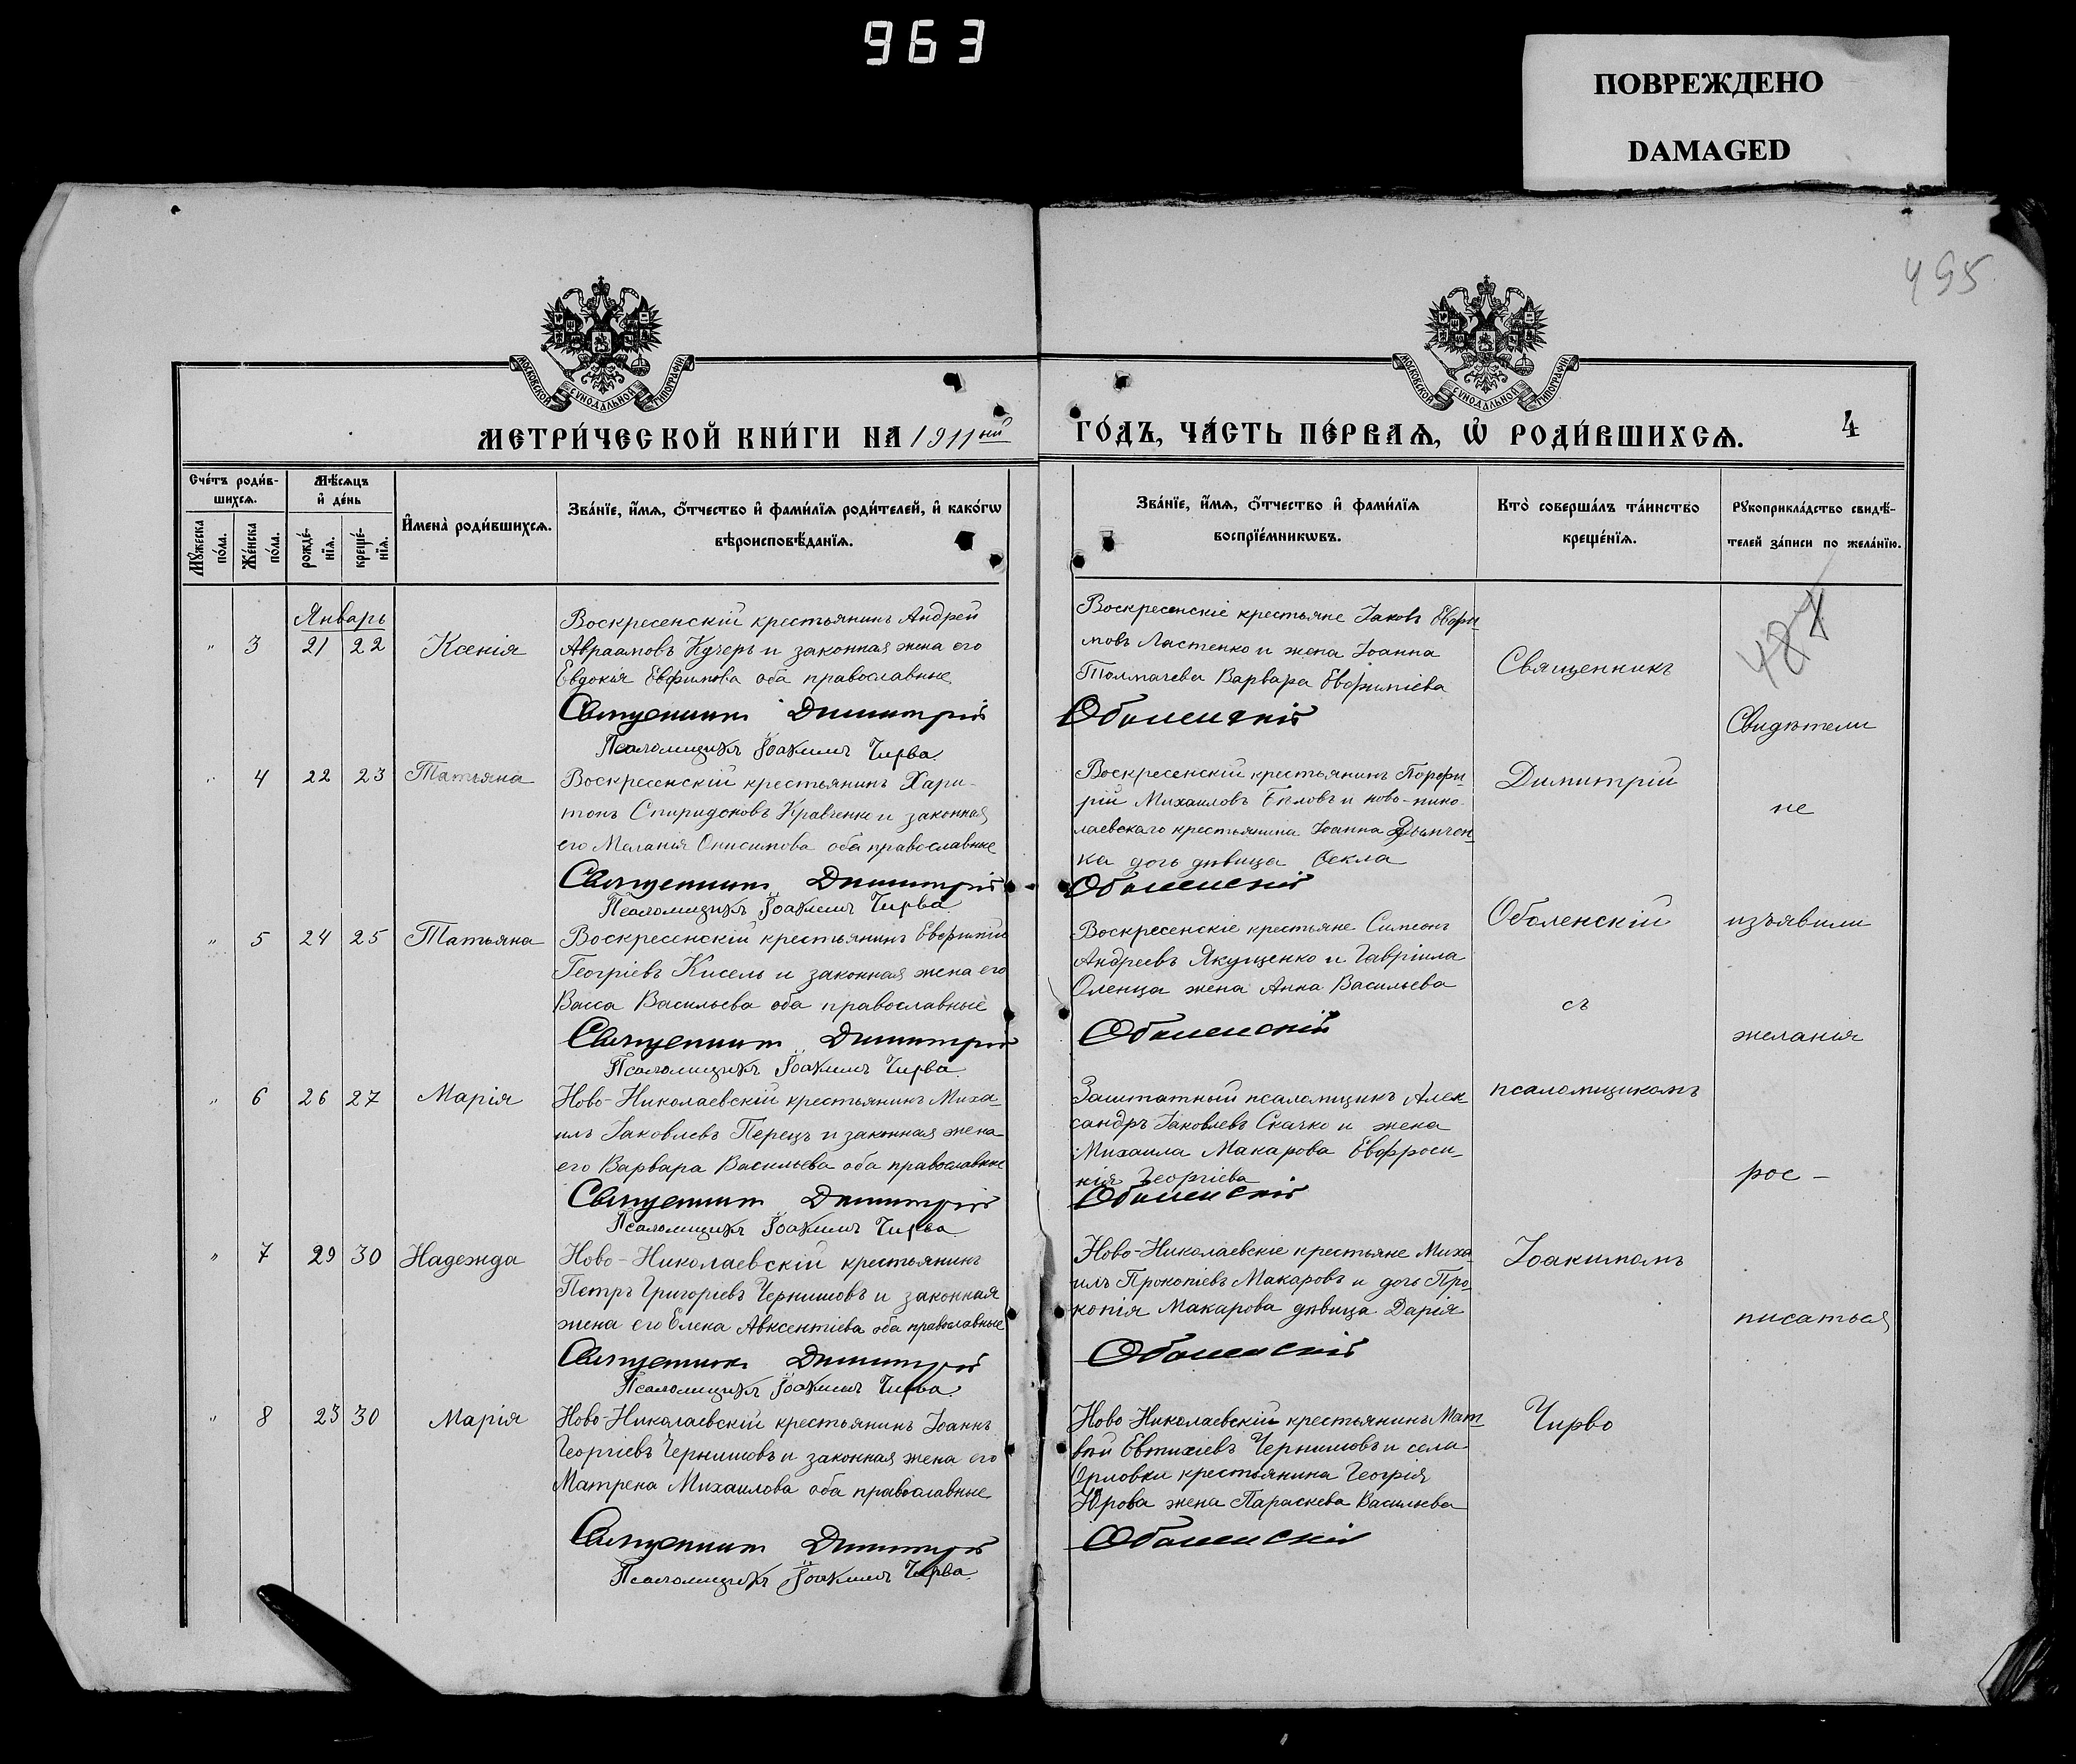 963
ПОВРЕЖДЕНО
DAMAGED
495
МОСКОВСКОЙ СѴНОДАЛЬНОЙ ТИПОГРАФІИ
МОСКОВСКОЙ СѴНОДАЛЬНОЙ ТИПОГРАФІИ
МЕТРИ́ЧЕСКОЙ КНИ́ГИ НА 1911ый
ГО́ДЪ, ЧА́СТЬ ПЕ́РВАѦ, Ѡ҆ РОДИ́ВШИХСѦ.
4
Сче́тъ роди́в-
шихсѧ.
Мꙋ́жеска по́ла.
Же́нска по́ла.
Мѣ́сѧцъ
и҆ де́нь
рожде́-нїѧ.
креще́-нїѧ.
И҆мена̀ роди́вшихсѧ.
Зва́нїе, и҆́мѧ, ѻ҆́тчество и҆ фами́лїѧ роди́телей, и҆ како́гѡ
вѣроисповѣ́данїѧ.
Зва́нїе, и҆́мѧ, ѻ҆́тчество и҆ фами́лїѧ
воспрїе́мникѡвъ.
Кто̀ соверша́лъ та́инство
креще́нїѧ.
Рꙋкоприкла́дство свидѣ́-
телей за́писи по жела́нїю.
Январь
" 3 21 22 Ксенія
Воскресенскій крестьянинъ Андрей
Авраамовъ Кучеръ и законная жена его
Евдокія Евфимова оба православные
Священникъ Димитрій
Псаломщикъ Іоакимъ Чирва
Воскресенскіе крестьяне Іаковъ Евфи-
мовъ Ластенко и жена Іоанна
Толмачева Варвара Евфиміева
Оболенскій
" 4 22 23 Татьяна
Воскресенскій крестьянинъ Хари-
тонъ Спиридоновъ Кравченко и законная
его Меланія Онисимова оба православные
Священникъ Димитрій
Псаломщикъ Іоакимъ Чирва
Воскресенскій крестьянинъ Порфи-
рій Михаиловъ Бѣловъ и ново-нико-
лаевскаго крестьянина Іоанна
ка дочь дѣвица Ѳекла
Оболенскій
" 5 24 25 Татьяна
Воскресенскій крестьянинъ Евфимій
Георгіевъ Кисель и законная жена его
Васса Васильева оба православные
Священникъ Димитрій
Псаломщикъ Іоакимъ Чирва
Воскресенскіе крестьяне Симеонъ
Андреевъ Якущенко и Гавріила
Оленца жена Анна Васильева
Оболенскій
" 6 26 27 Марія
Ново-Николаевскій крестьянинъ Миха-
илъ Іаковлевъ Перецъ и законная жена
его Варвара Васильева оба православные
Священникъ Димитрій
Псаломщикъ Іоакимъ Чирва
Заштатный псаломщикъ Алек-
сандръ Іаковлевъ Скачко и жена
Михаила Макарова Евфроси-
нія Георгіева
Оболенскій
" 7 29 30 Надежда
Ново-Николаевскій крестьянинъ
Петръ Григоріевъ Чернишовъ и законная
жена его Елена Авксентіева оба православные
Священникъ Димитрій
Псаломщикъ Іоакимъ Чирва
Ново-Николаевскіе крестьяне Миха-
илъ Прокопіевъ Макаровъ и дочь Про-
копія Макарова дѣвица Дарія
Оболенскій
" 8 23 30 Марія
Ново-Николаевскій крестьянинъ Іоаннъ
Георгіевъ Чернишовъ и законная жена его
Матрена Михаилова оба православные
Священникъ Димитрій
Псаломщикъ Іоакимъ Чирва
Ново Николаевскій крестьянинъ Мат-
вѣй Евтихіевъ Чернишовъ и села
Орловки крестьянина Георгія
Юрова жена Параскева Васильева
Оболенскій
Священникъ
Димитрій
Оболенскій
съ
псаломщикомъ
Іоакимомъ
Чирво
487
Свидѣтели
не
изъявили
желанія
рос-
писаться